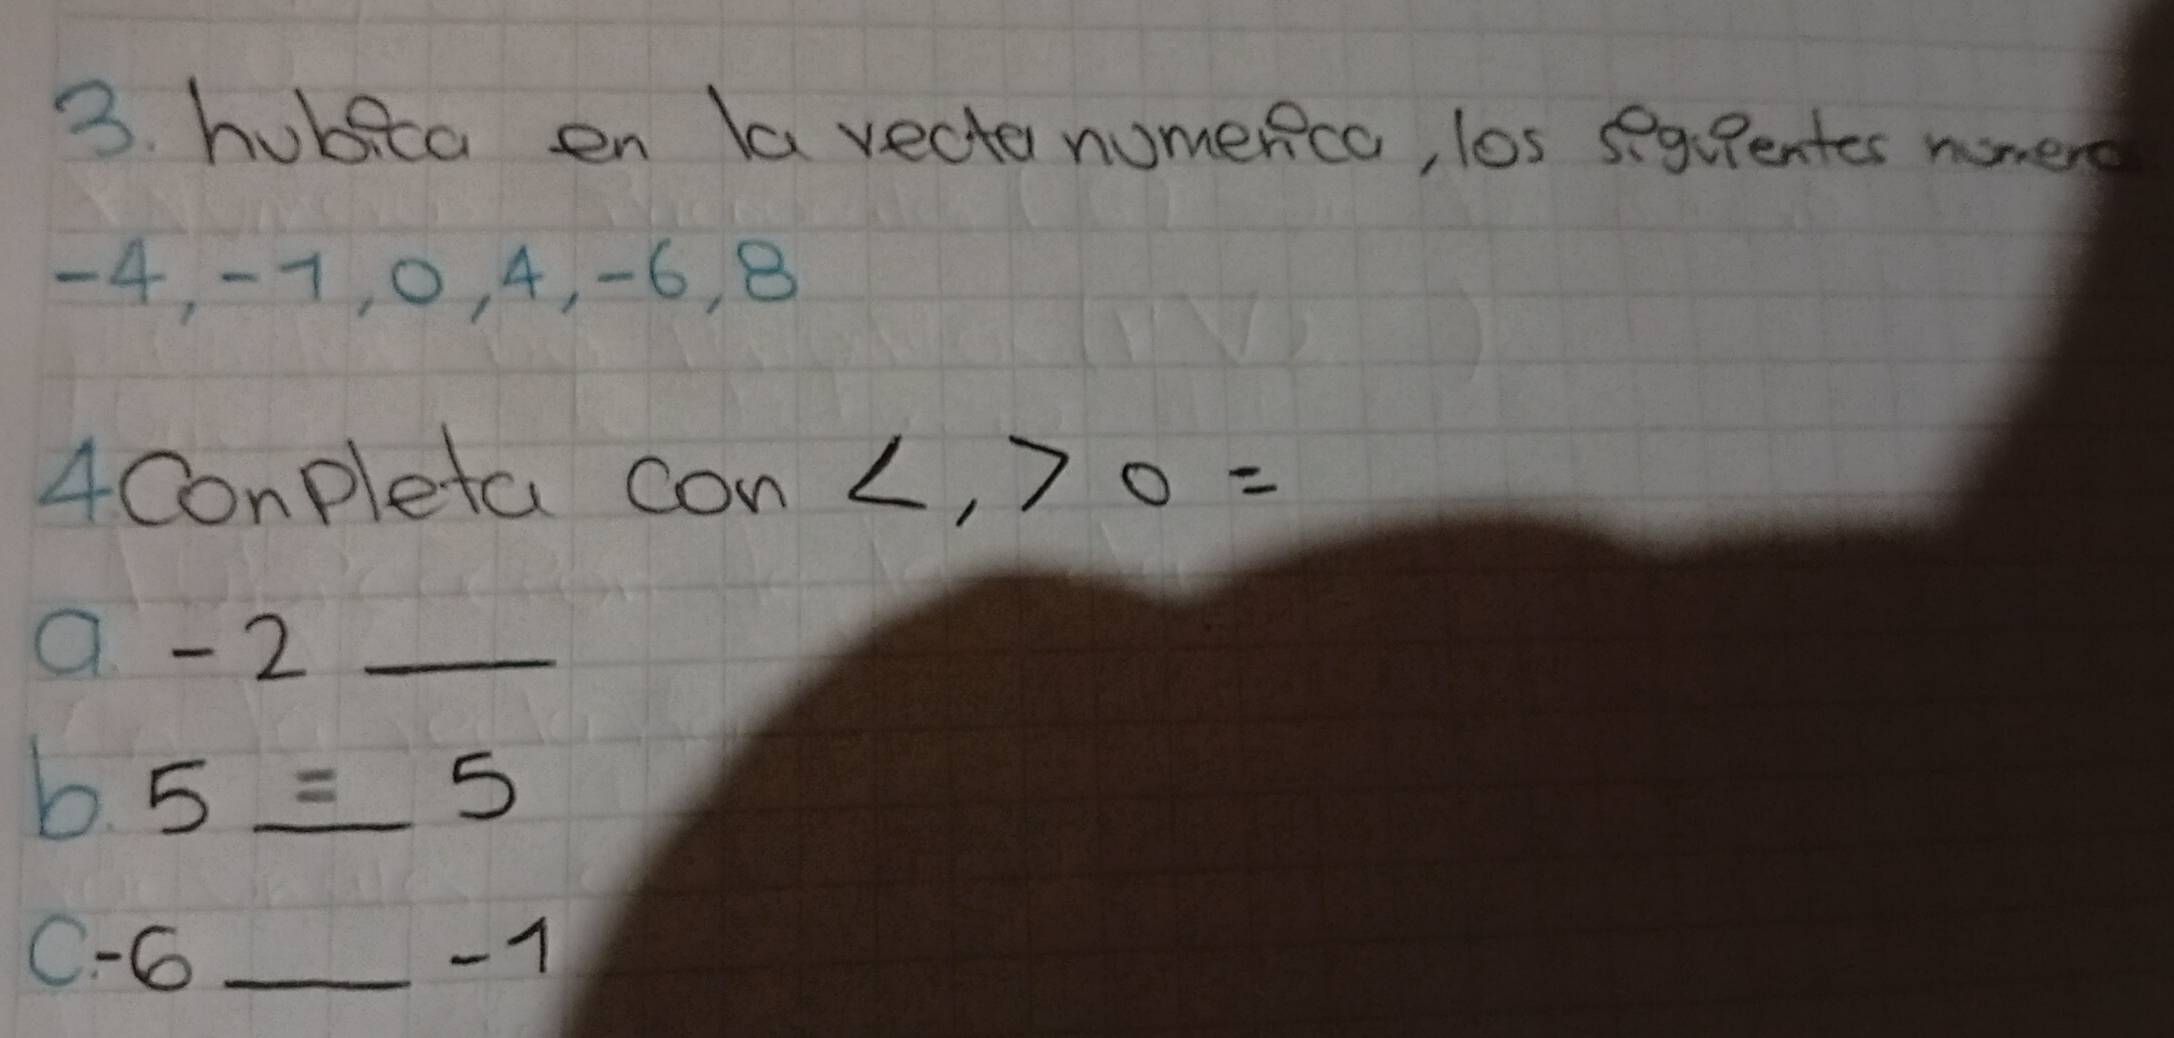 3. hubica en la recta numerica, los siguientes
-4, -1, 0, 4, -6, 8
4 Conpleta con <, > o =
a. -2 ___
b. 5 = 5
c. -6 ___ -1